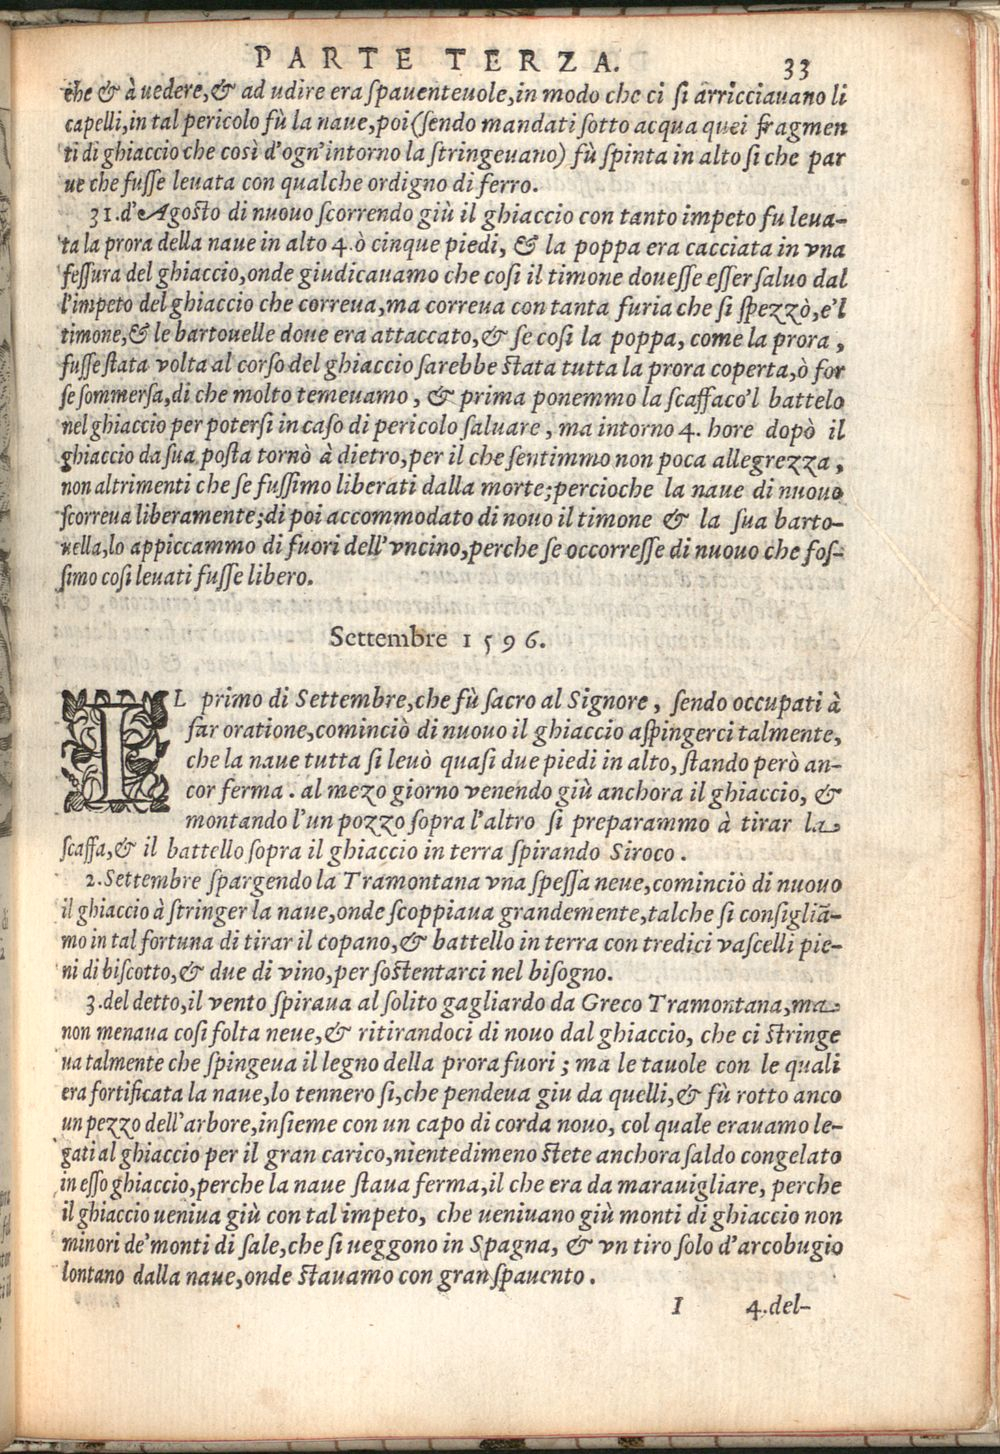 PARTE TERZA. 33
che & à uedere,& ad udire era ſpauenteuole,in modo che ci ſi arricciauano li
capelli,in tal pericolo fù la naue,poi(ſendo mandati ſotto acqua quei fragmen
ti di ghiaccio che così d'ogn'intorno la ſtringeuano) fù ſpinta in alto ſi che par
ue che fuſſe leuata con qualche ordigno di ferro.
31.d'Agoſto di nuouo ſcorrendo giù il ghiaccio con tanto impeto fu leua-
ta la prora della naue in alto 4.ò cinque piedi, & la poppa era cacciata in vna
feſſura del ghiaccio,onde giudicauamo che coſi il timone doueſſe eſſer ſaluo dal
l'impeto del ghiaccio che correua,ma correua con tanta furia che ſi ſpezzò,e'l
timone,& le bartouelle doue era attaccato,& ſe coſi la poppa, come la prora ,
fuſſe ſtata volta al corſo del ghiaccio ſarebbe ſtata tutta la prora coperta,ò for
ſe ſommerſa,di che molto temeuamo , & prima ponemmo la ſcaffa co'l battelo
nel ghiaccio per poterſi in caſo di pericolo ſaluare , ma intorno 4. hore dopò il
ghiaccio da ſua poſta tornò à dietro,per il che ſentimmo non poca allegrezza ,
non altrimenti che ſe fuſſimo liberati dalla morte;percioche la naue di nuouo
ſcorreua liberamente;di poi accommodato di nouo il timone & la ſua barto-
uella,lo appiccammo di fuori dell'vncino,perche ſe occorreſſe di nuouo che foſ-
ſimo coſi leuati fuſſe libero.
Settembre 1596.
IL primo di Settembre,che fù ſacro al Signore , ſendo occupati à
far oratione,cominciò di nuouo il ghiaccio aſpingerci talmente,
che la naue tutta ſi leuò quaſi due piedi in alto, ſtando però an-
cor ferma . al mezo giorno venendo giù anchora il ghiaccio, &
montando l'un pozzo ſopra l'altro ſi preparammo à tirar la
ſcaffa,& il battello ſopra il ghiaccio in terra ſpirando Siroco .
2.Settembre ſpargendo la Tramontana vna ſpeſſa neue,cominciò di nuouo
il ghiaccio à ſtringer la naue,onde ſcoppiaua grandemente,talche ſi conſigliā-
mo in tal fortuna di tirar il copano,& battello in terra con tredici vaſcelli pie-
ni di biſcotto,& due di vino,per ſoſtentarci nel biſogno.
3.del detto,il vento ſpiraua al ſolito gagliardo da Greco Tramontana,ma
non menaua coſi folta neue,& ritirandoci di nouo dal ghiaccio, che ci ſtringe
ua talmente che ſpingeua il legno della prora fuori ; ma le tauole con le quali
era fortificata la naue,lo tennero ſi,che pendeua giu da quelli,& fù rotto anco
un pezzo dell'arbore,inſieme con un capo di corda nouo, col quale erauamo le-
gati al ghiaccio per il gran carico,nientedimeno ſtete anchora ſaldo congelato
in eſſo ghiaccio,perche la naue ſtaua ferma,il che era da marauigliare, perche
il ghiaccio ueniua giù con tal impeto, che ueniuano giù monti di ghiaccio non
minori de'monti di ſale,che ſi ueggono in Spagna, & vn tiro ſolo d'arcobugio
lontano dalla naue,onde ſtauamo con gran ſpauento .
I 4.del-